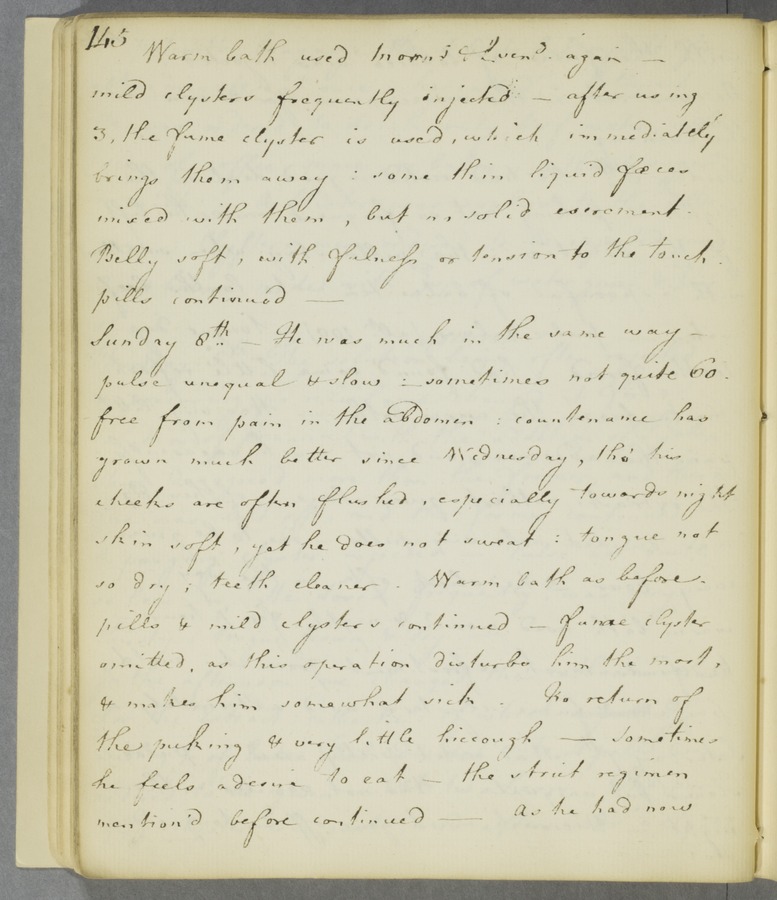 145
Warm bath used morn.g & Even.g again —
mild clysters frequently injected — after using
3, the fume clyster is used, which immediately
brings them away : some thin liquid fæces
mixed with them, but no solid excrement.
Belly soft, with fulness or tension to the touch.
pills continued —
Sunday 8th — He was much in the same way —
pulse unequal & slow : — sometimes not quite 60.
free from pain in the abdomen : countenance has
grown much better since Wednesday, tho' his
cheeks are often flushed, especially towards night
skin soft, yet he does not sweat : tongue not
so dry ; teeth cleaner. Warm bath as before.
pills & mild clysters continued — fume clyster
omitted, as this operation disturbs him the most,
& makes him somewhat sick. No return of
the puking & very little hiccough — sometimes
he feels a desire to eat — the strict regimen
mention'd before continued — As he had now